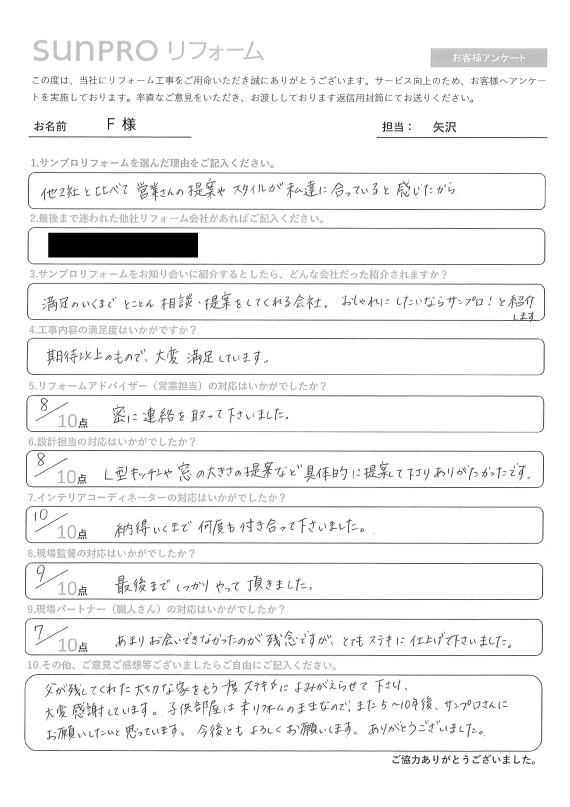 SUNPRO リフォーム
お客様アンケート
この度は、当社にリフォーム工事をご用命いただき誠にありがとうございます。サービス向上のため、お客様へアンケー
トを実施しております。率直なご意見をいただき、お渡ししております返信用封筒にてお送りください。
お名前 F 様 担当： 矢沢
1.サンプロリフォームを選んだ理由をご記入ください。
他2社と比べて 営業さんの提案や スタイルが 私達に 合っていると 感じたから
2.最後まで迷われた他社リフォーム会社があればご記入ください。
3.サンプロリフォームをお知り合いに紹介するとしたら、どんな会社だった紹介されますか？
満足のいくまで とことん 相談・提案をしてくれる会社。 おしゃれに したいならサンプロ！と紹介
します
4.工事内容の満足度はいかがですか？
期待以上のもので、大変 満足しています。
5.リフォームアドバイザー（営業担当）の対応はいかがでしたか？
8/10点 密に連絡を取って下さいました。
6.設計担当の対応はいかがでしたか？
8/10点 L型キッチンや 窓の大きさの提案など 具体的に提案して下さりありがたかったです。
7.インテリアコーディネーターの対応はいかがでしたか？
10/10点 納得いくまで 何度も付き合って下さいました。
8.現場監督の対応はいかがでしたか？
9/10点 最後まで しっかり やって 頂きました。
9.現場パートナー（職人さん）の対応はいかがでしたか？
7/10点 あまり お会いできなかったのが 残念ですが、とてもステキに 仕上げて下さいました。
10.その他、ご意見ご感想等ございましたらご自由にご記入ください。
父が残してくれた 大切な家をもう一度 ステキに よみがえらせて 下さり、
大変 感謝しています。 子供部屋は 未リフォームのままなので、また5～10年後、サンプロさんに
お願いしたいと 思っています。 今後とも よろしくお願いします。ありがとうございました。
ご協力ありがとうございました。